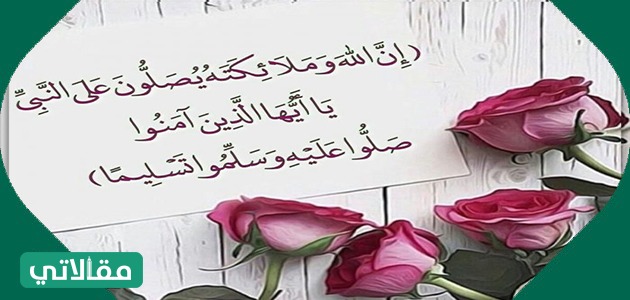 (إِنَّ اللهَ وَمَلَائِكَتَهُ يُصَلُّونَ عَلَى النَّبِيِّ
يَا أَيُّهَا الَّذِينَ آمَنُوا
صَلُّوا عَلَيْهِ وَسَلِّمُوا تَسْلِيمًا)
مقالاتي